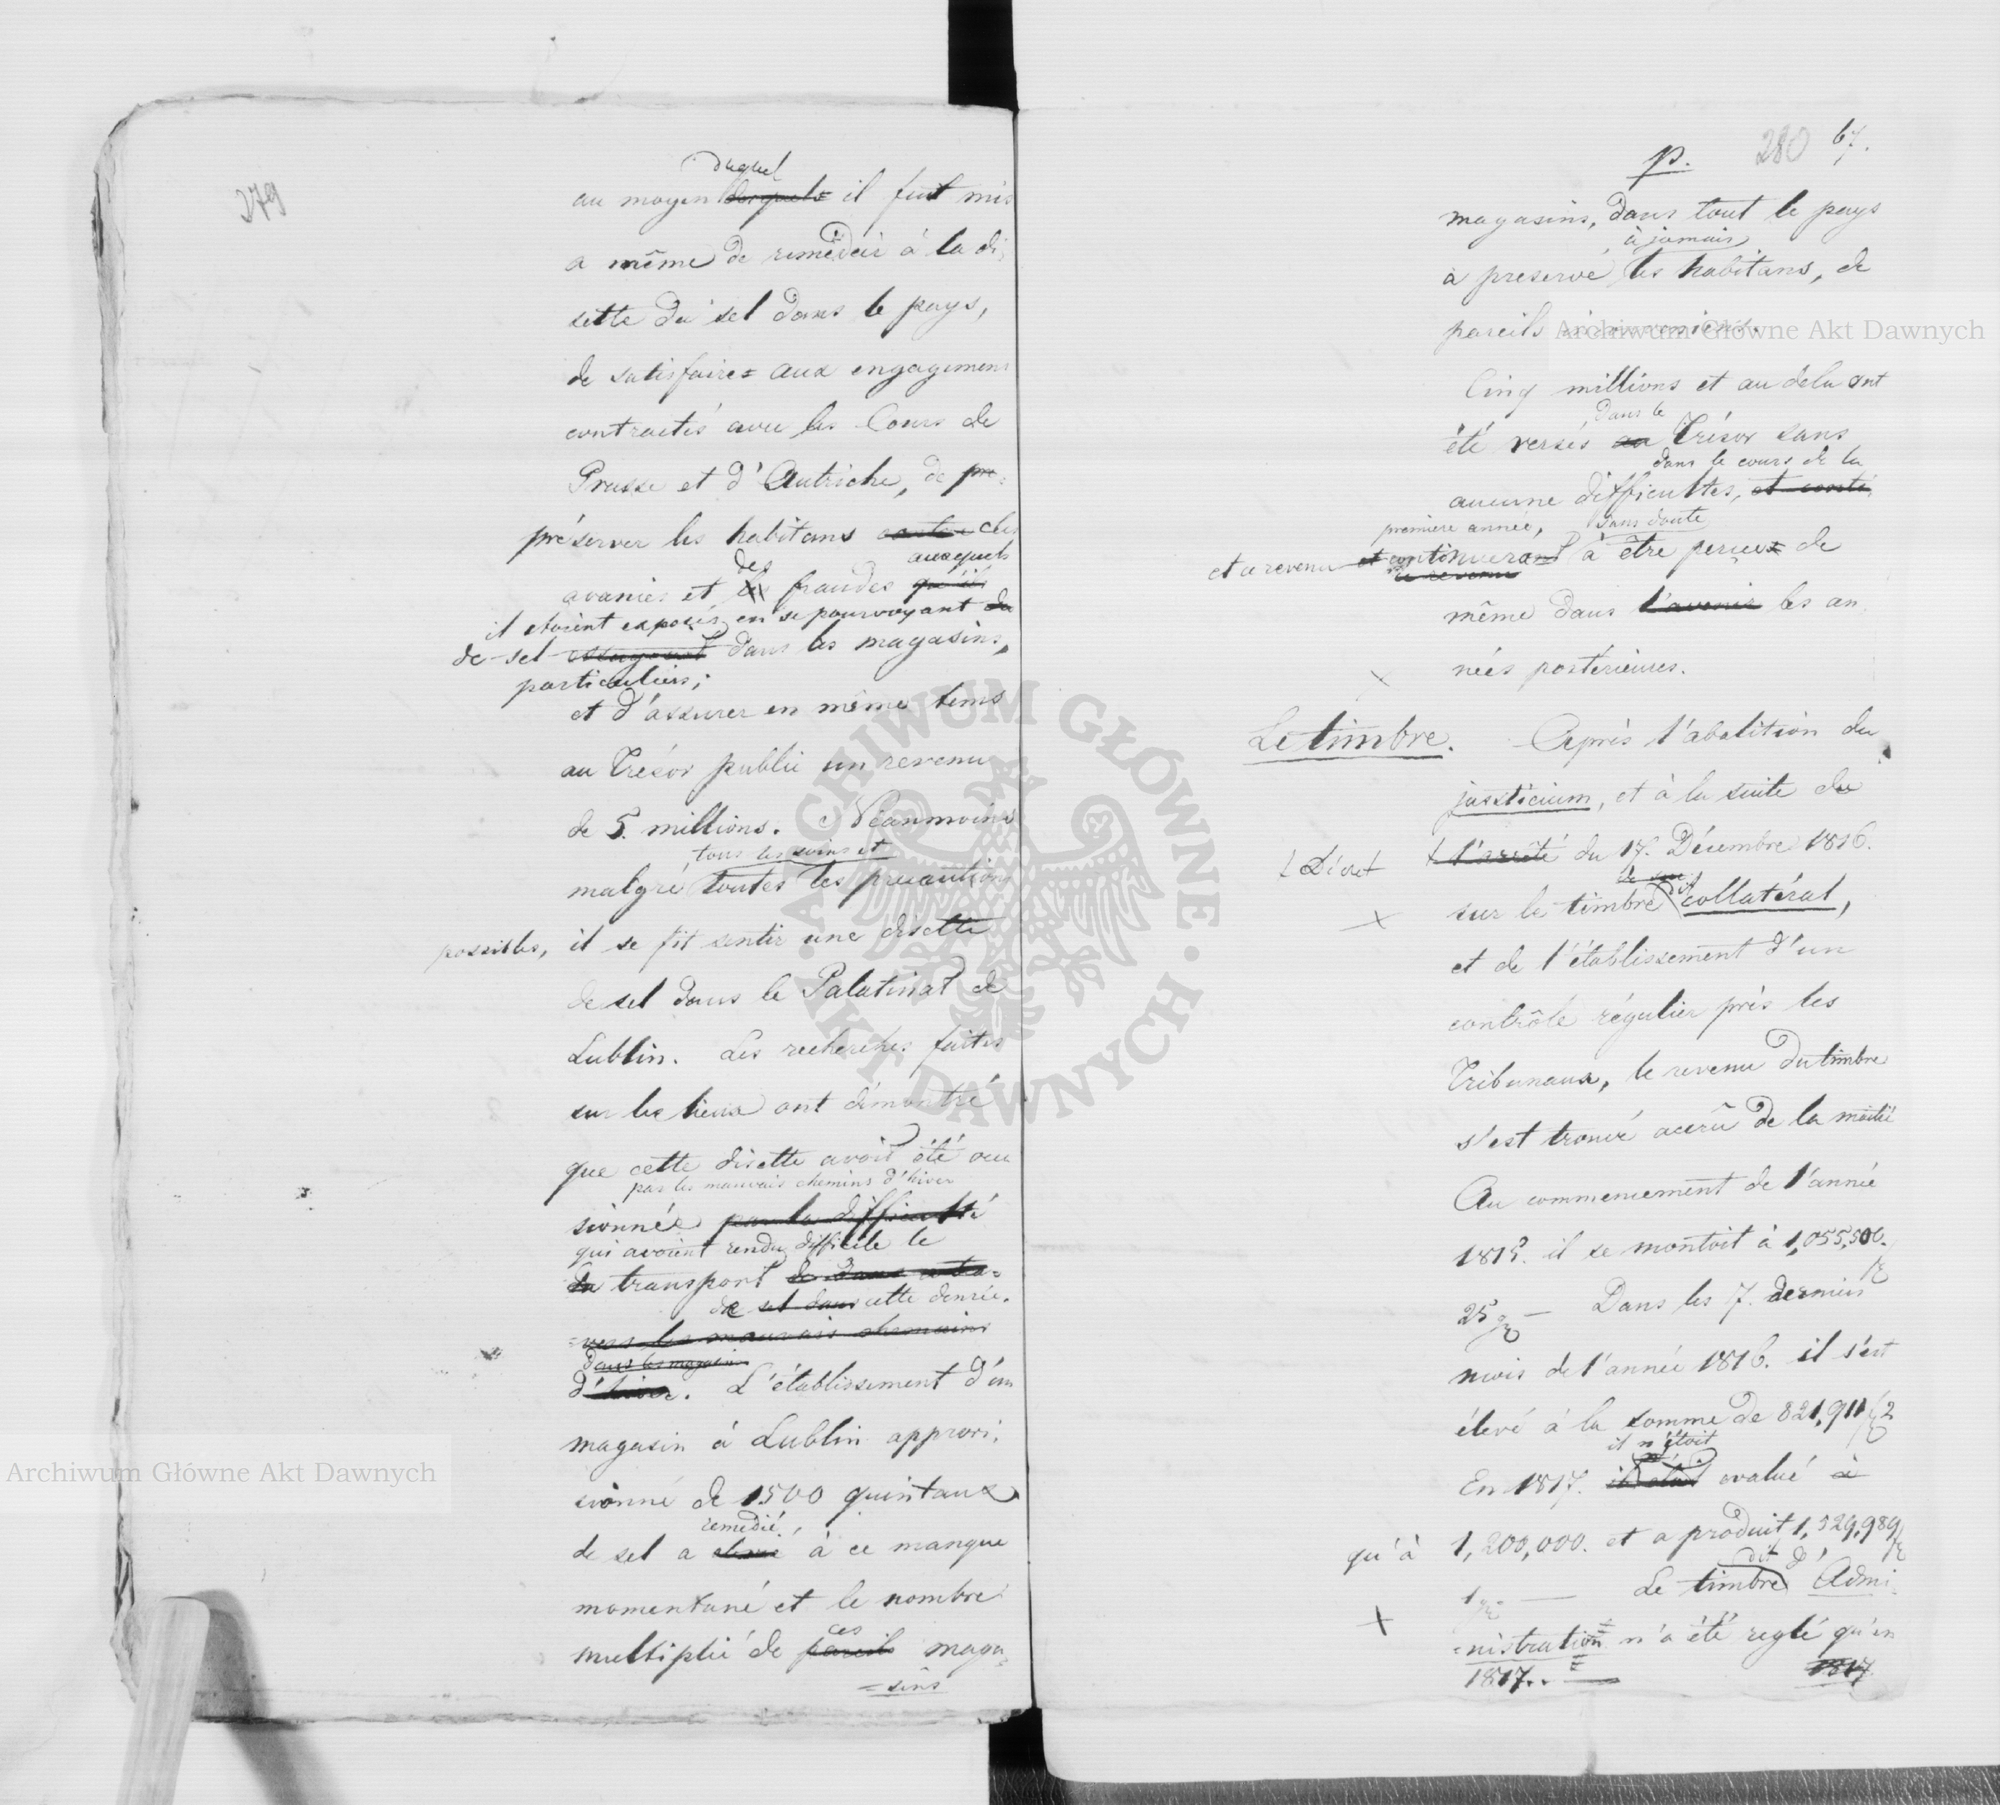 279
duquel
au moyen desquels il fut mis
a même de remedier à la di,
sette du sel dans le pays,
de satisfaire= aux engagemens
contractés avec les Cours de
Prusse et d'Autriche, de pre-
préserver les habitans contre des
auxquels
des
avanies et les fraudes qu'ils
il etoient exposés, en se pourvoyant du
de sel dans les magasins,
particuliers;
et d'assurer en même tems
au Trésor public un revenu
de 5. millions. Néanmoins
tous les soins et
malgré toutes les precautions
possibles, il se fit sentir une disette
de sel dans le Palatinat de
Lublin. Les recherches faites
sur les lieux ont démontré
que cette disette avoit été occa
par les mauvais chemins d'hiver
sionnée par la difficulté
qui avoient rendu difficile le
du transport
de sel dans cette denrée.
=vers les mauvais chemains
dans les magasins
d'hiver. L'établissement d'un
magasin à Lublin approvi,
sionné de 1500 quintaux
remedié,
de sel a à ce manque
momentané et le nombre
ces
multiplié de pareils maga=
=sins
p. 280 67.
magasins, dans tout le pays
à jamais
a preservé les habitans, de
pareils inconveniens.
Cinq millions et au delà ont
dans le
été versés au Trésor sans
dans le cours de la
aucune difficultés, et conti,
première année, sans doute
et ce revenu et continueront à être perçue= de
ce revenu
même dans l'avenir les an,
nées postérieures.
Le timbre. Après l'abolition du
justicium, et à la suite du
Décret l'arrêté du 17. Décembre 1816.
dit
sur le timbre collatéral,
et de l'établissement d'un
contrôle régulier près les
Tribunaux, le revenu du timbre
s'est trouvé accrû de la moitié
Au commencement de l'année
1815. il se montoit à 1,055,506.
25 Dans les 7. derniers
mois de l'année 1816. il s'est
élevé à la somme de 821,911 2
il n'étoit
En 1817. il étoit evalué à
qu'à 1,200,000. et a produit 1,529,989
dit d'
1 — Le timbre Admi
=nistration n'a été reglé qu'en
1817.. — 1817
Archiwum Główne Akt Dawnych
Archiwum Główne Akt Dawnych
ARCHIWUM GŁÓWNE · AKT DAWNYCH ·